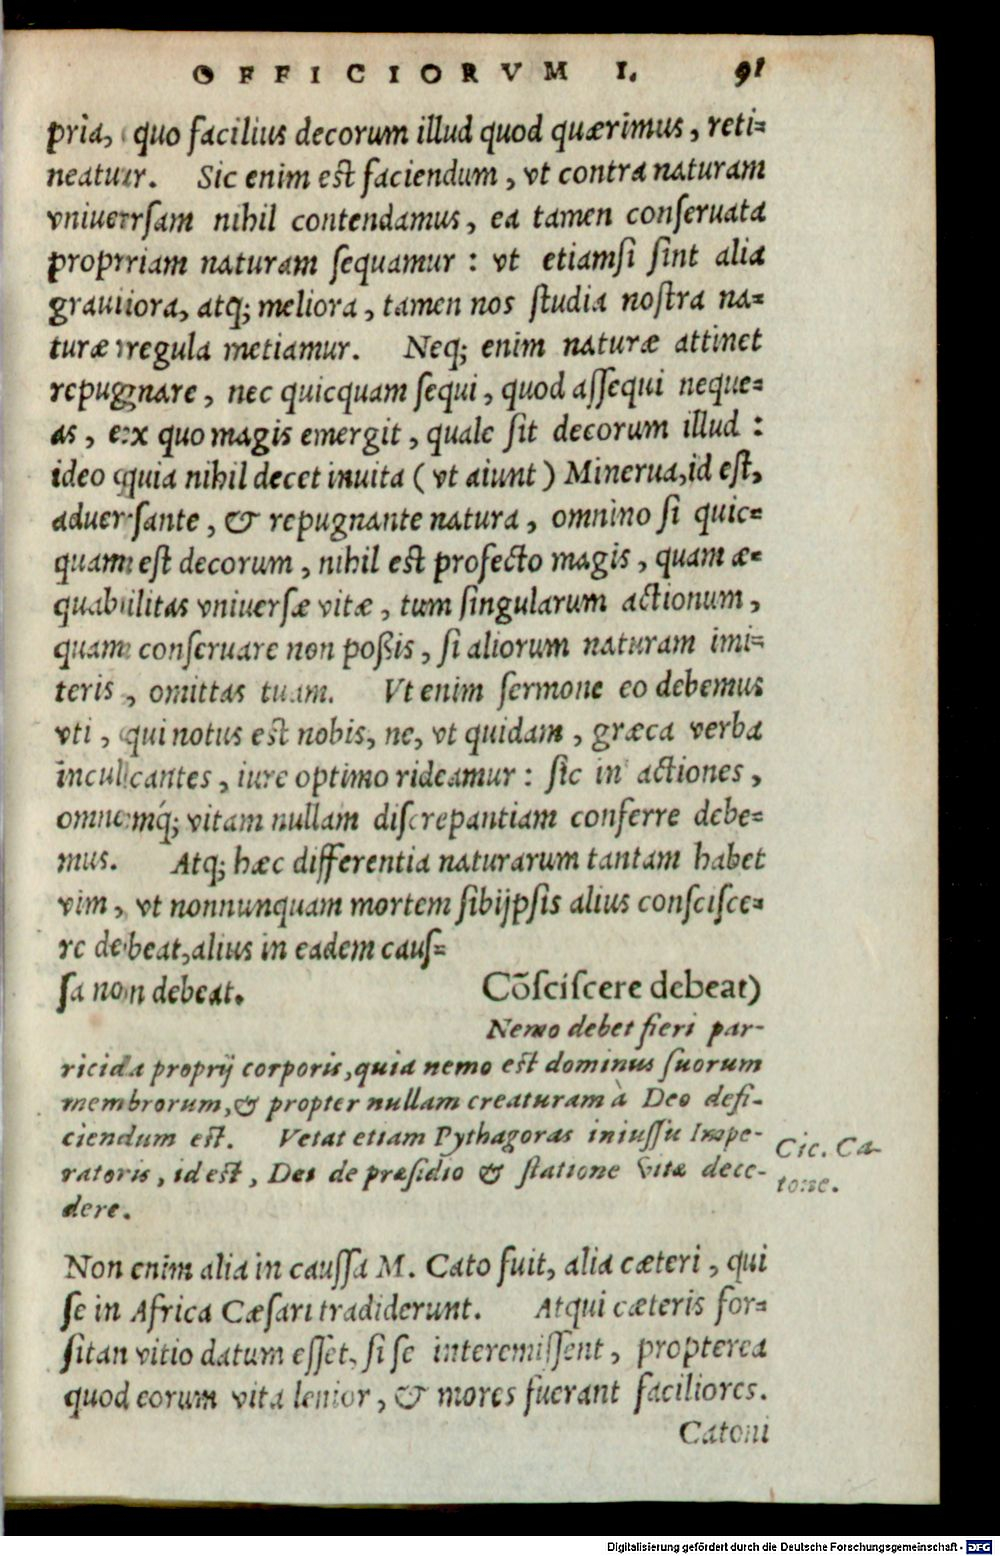 OFFICIORVM I. 91
pria, quo facilius decorum illud quod quærimus, reti=
neatur. Sic enim est faciendum, vt contra naturam
vniuersam nihil contendamus, ea tamen conseruata
propriam naturam sequamur : vt etiamsi sint alia
grauiora, atq; meliora, tamen nos studia nostra na=
turæ regula metiamur. Neq; enim naturæ attinet
repugnare, nec quicquam sequi, quod assequi neque=
as, ex quo magis emergit, quale sit decorum illud :
ideo quia nihil decet inuita (vt aiunt) Minerua, id est,
aduersante, & repugnante natura, omnino si quic=
quam est decorum, nihil est profecto magis, quam æ=
quabilitas vniuersæ vitæ, tum singularum actionum,
quam conseruare non poßis, si aliorum naturam imi=
teris, omittas tuam. Vt enim sermone eo debemus
vti, qui notus est nobis, ne, vt quidam, græca verba
inculcantes, iure optimo rideamur : sic in actiones,
omnemq́; vitam nullam discrepantiam conferre debe=
mus. Atq; hæc differentia naturarum tantam habet
vim, vt nonnunquam mortem sibijpsis alius conscisce=
re debeat, alius in eadem caus=
sa non debeat. Cōsciscere debeat)
Nemo debet fieri par-
ricida proprij corporis, quia nemo est dominus suorum
membrorum, & propter nullam creaturam à Deo defi-
ciendum est. Vetat etiam Pythagoras iniussu Impe-
ratoris, id est, Dei de præsidio & statione vitæ dece-
dere.
Cic. Ca-
tone.
Non enim alia in caussa M. Cato fuit, alia cæteri, qui
se in Africa Cæsari tradiderunt. Atqui cæteris for=
sitan vitio datum esset, si se interemissent, propterea
quod eorum vita lenior, & mores fuerant faciliores.
Catoni
Digitalisierung gefördert durch die Deutsche Forschungsgemeinschaft - DFG